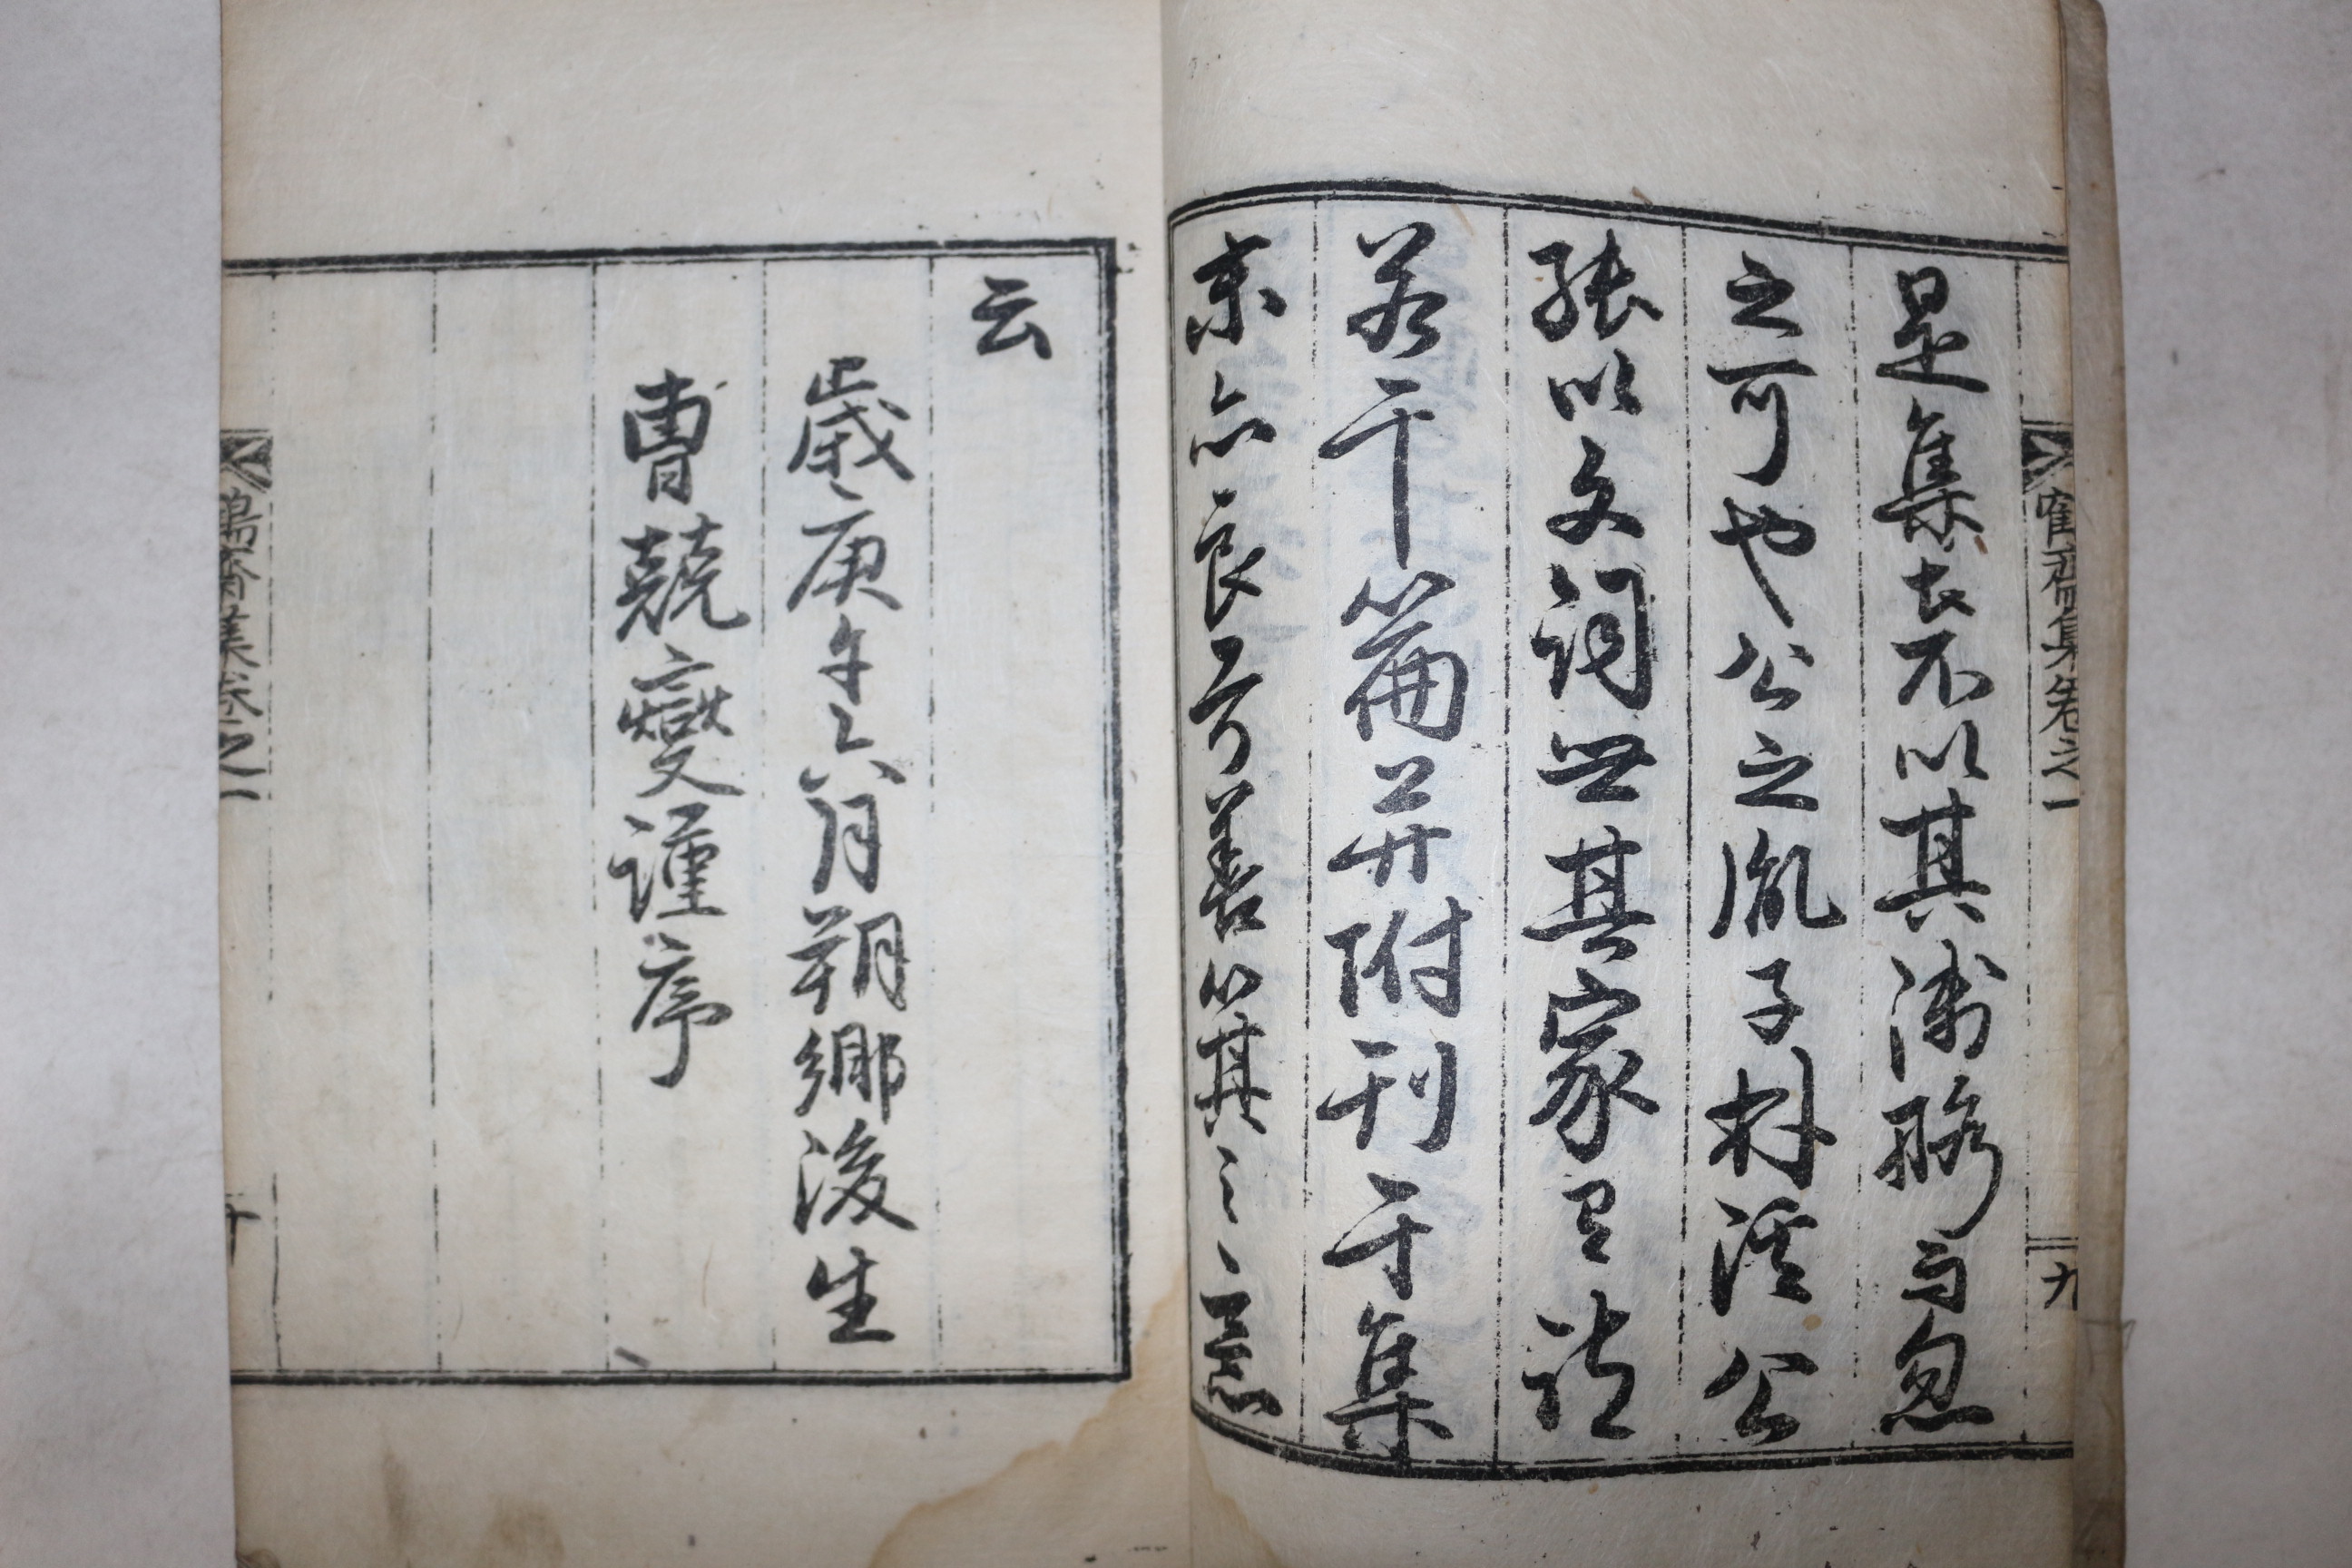 鶴齋集卷之一
九
是集者不以其淺略而忽
之可也公之胤子林溪公
張以文詞世其家有詩
若干篇并附刊于集
末亦良可善以其云云
云
歲庚午六月朔鄉後生
曺兢燮謹序
鶴齋集卷之一
十